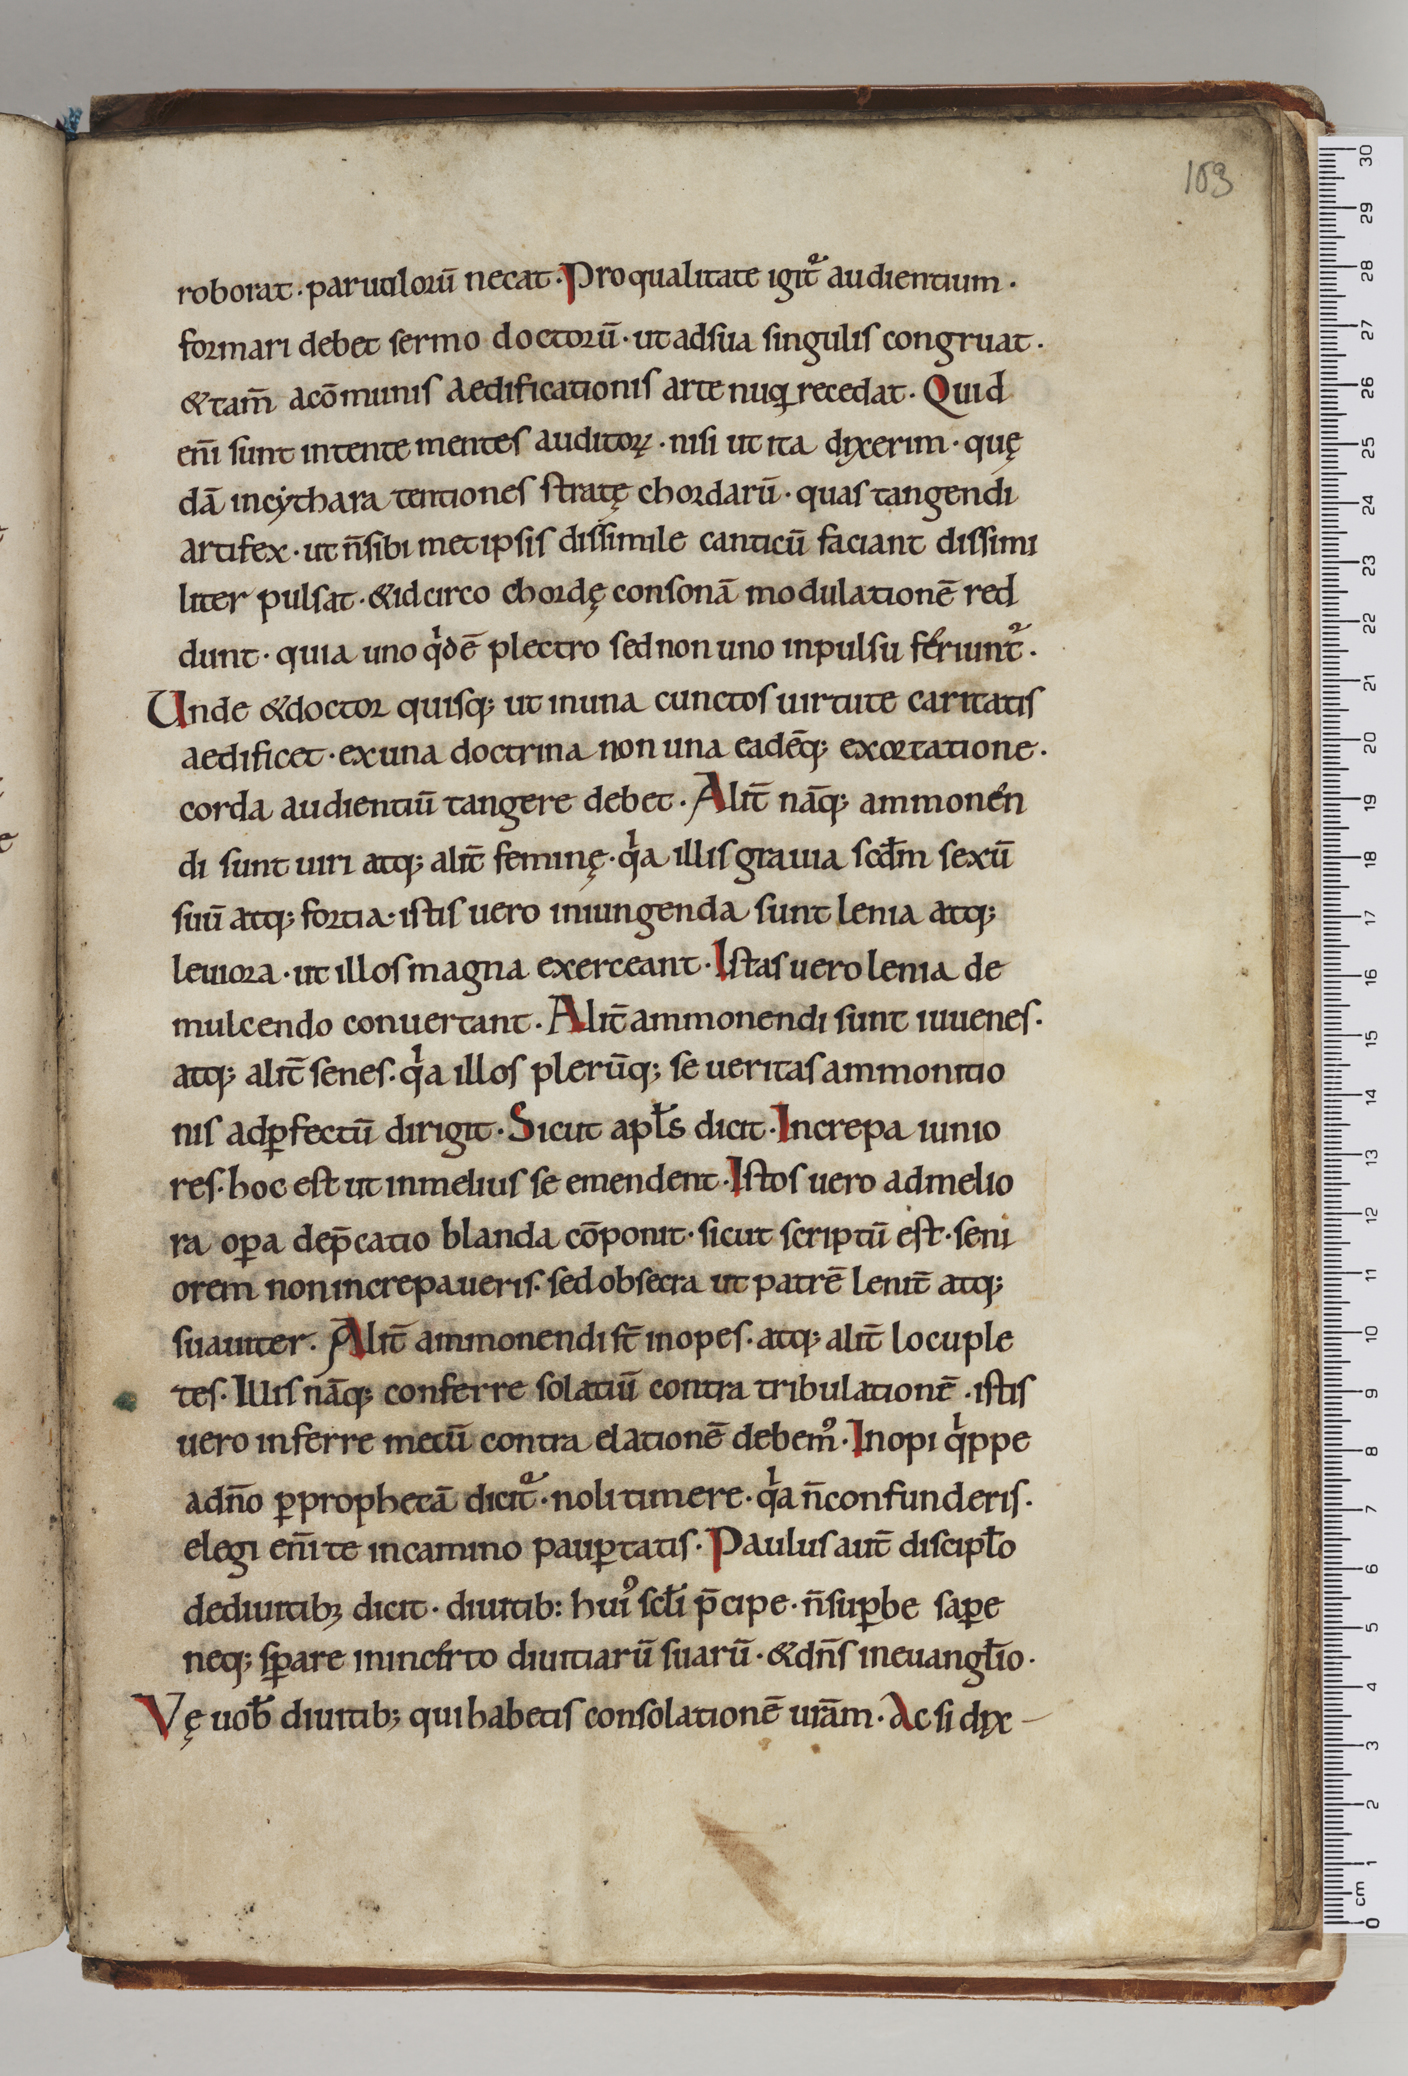 103
roborat · paruulorū necat · Pro qualitate igit᷑ audientium ·
formari debet sermo doctorū · ut ad sua singulis congruat ·
& tam̄ a cōmunis aedificationis arte nuqꝫ recedat · Quid
en̄i sunt intente mentes auditoꝝ · nisi ut ita dixerim · quę
dā in cythara tentiones stratę chordarū · quas tangendi
artifex · ut n̄ sibimet ipsis dissimile canticū faciant dissimi
liter pulsat · & idcirco chordę consonā modulationē red
dunt · quia uno qͥdē plectro sed non uno inpulsu feriunt᷑ ·
Unde & doctor quisq; ut in una cunctos uirtute caritatis
aedificet · ex una doctrina non una eadēq; exortatione ·
corda audientiū tangere debet · Alit̄ nāq; ammonén
di sunt uiri atq; alit̄ feminę · qͥa illis grauia scd̄m sexū
suū atq; fortia · istis uero iniungenda sunt lenia atq;
leuiora · ut illos magna exerceant · Istas uero lenia de
mulcendo conuertant · Alit̄ ammonendi sunt iuuenes ·
atq; alit̄ senes · qͥa illos plerūq; seueritas ammonitio
nis ad ꝑfectū dirigit · Sicut apl̄s dicit · Increpa iunio
res · hoc est ut in melius se emendent · Istos uero ad melio
ra oꝑa dep̄catio blanda cōponit · sicut scriptū est · seni
orem non increpaueris · sed obsecra ut patrē lenit̄ atq;
suauiter · Alit̄ ammonendi st̄ inopes · atq; alit̄ locuple
tes · Illis nāq; conferre solatiū contra tribulationē · istis
uero inferre metū contra elationē debem᷒ · Inopi qͥppe
a dn̄o ꝑ prophetā dicit᷑ · noli timere · qͥa n̄ confunderis ·
elegi en̄i te in camino pauꝑtatis · Paulus aut̄ discipl̄o
de diuitibꝫ dicit · diuitib: hui᷒ scl̄i p̄cipe · n̄ suꝑbe saꝑe
neq; sꝑare in incerto diuitiarū suarū · & dn̄s in euangl̄io ·
Vę uob̄ diuitib; qui habetis consolationē urā̄m · Ac si dix